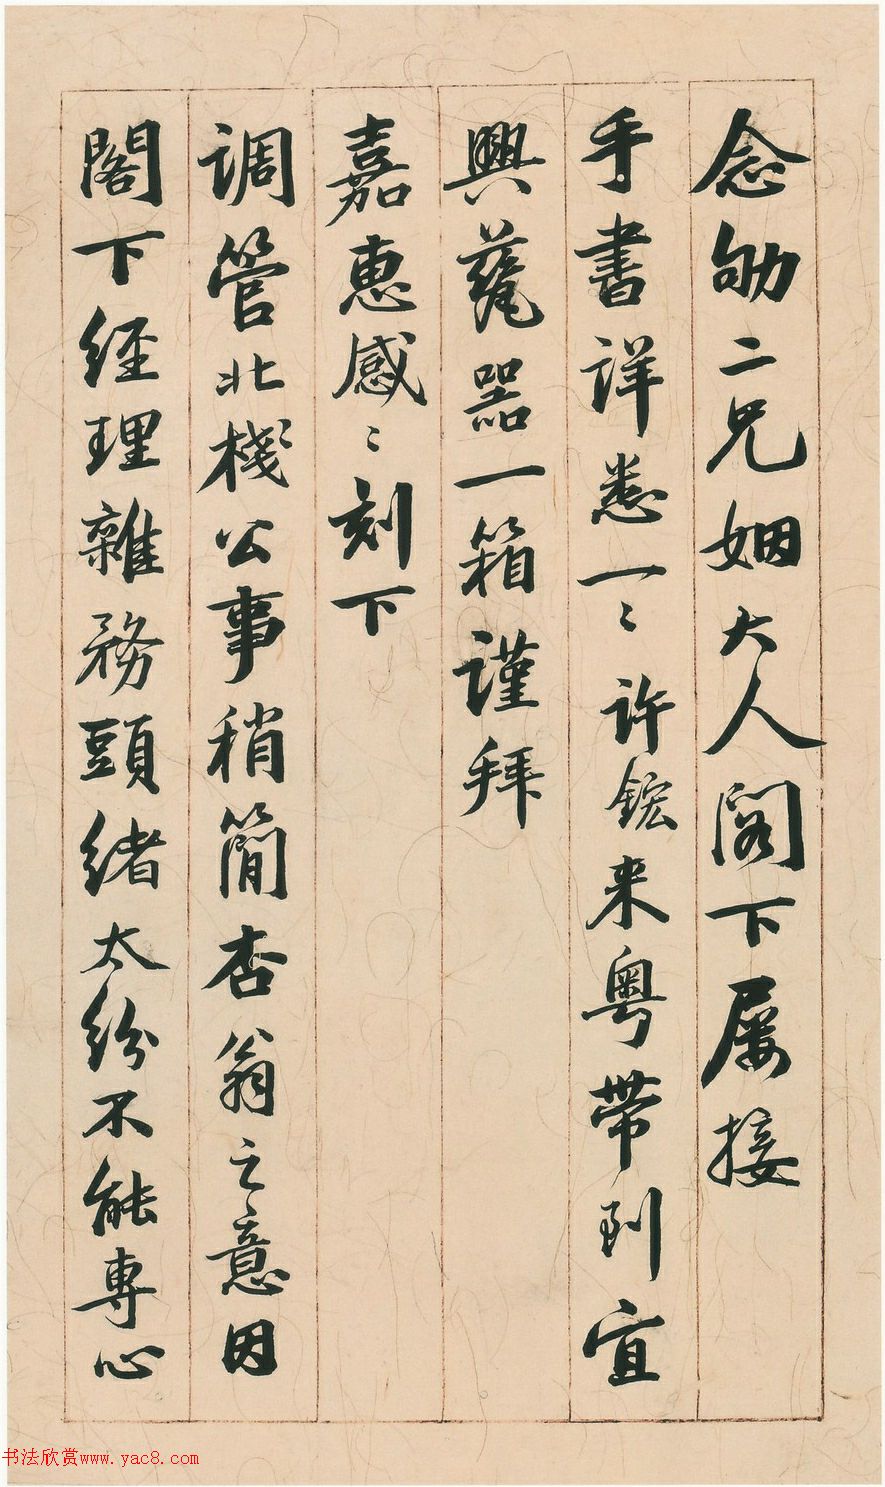 念劬二兄姻大人閣下屢接
手書詳悉一〻許鋐来粤帶到宜
興甆器一箱謹拜
嘉惠感〻刻下
调管北棧公事稍簡杏翁之意因
閣下經理雜務頭緒太紛不能專心
书法欣赏www.yac8.com